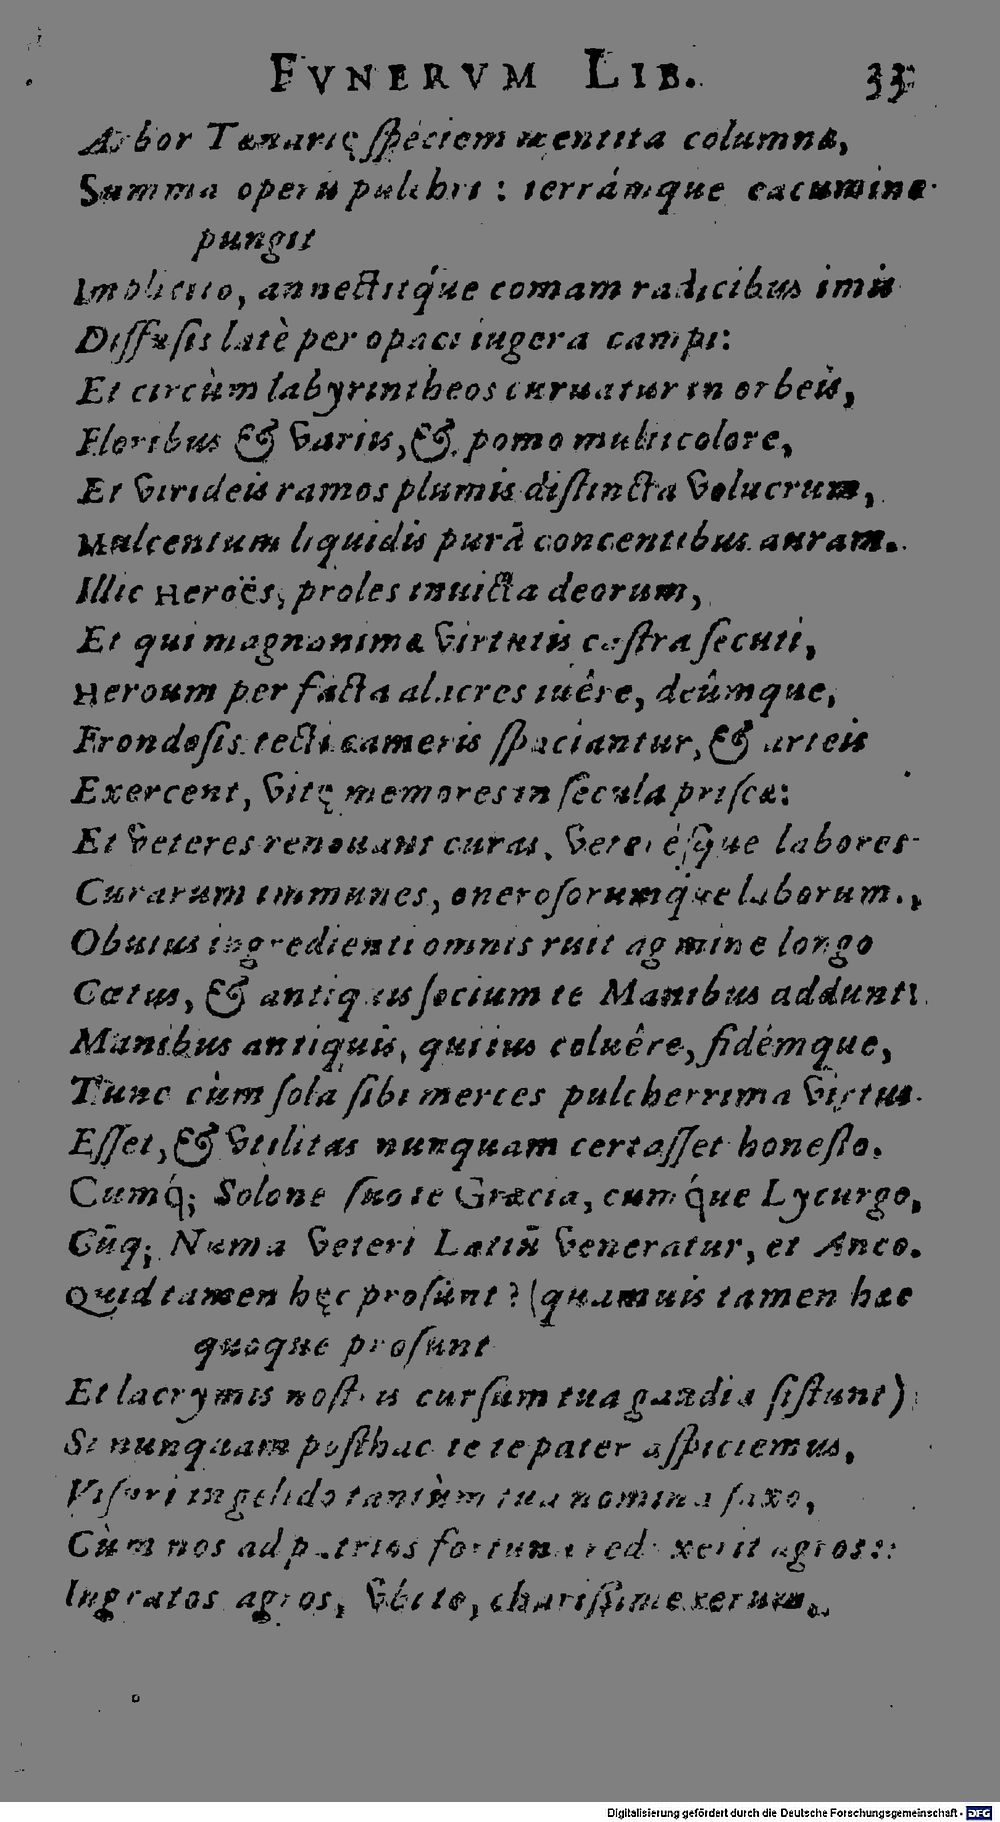 FVNERVM LIB. 33
Arbor Tænarię ſpeciem mentita columnæ,
Summa operū pulchri : terrámque cacumine
pungit
Implicito, annectitq́ue comam radicibus imis
Diffuſis latè per opaci iugera campi:
Et circùm labyrintheos curuatur in orbeis,
Floribus & varijs, & pomo multicolore,
Et virideis ramos plumis diſtincta volucrum,
Mulcentum liquidis purā concentibus auram.
Illic Heroës, proles inuicta deorum,
Et qui magnanimæ virtutis caſtra ſecuti,
Heroum per facta alacres iuêre, deûmque,
Frondoſis tecti cameris ſpaciantur, & arteis
Exercent, vitę memores in ſecula priſcæ:
Et veteres renouant curas, veteréſque labores
Curarum immunes, oneroſorumq́ue laborum.,
Obuius ingredienti omnis ruit agmine longo
Cœtus, & antiquis ſocium te Manibus addunt:
Manibus antiquis, qui ius coluêre, fidémque,
Tunc cùm ſola ſibi merces pulcherrima virtus
Eſſet, & vtilitas nunquam certaſſet honeſto.
Cumq́; Solone ſuo te Græcia, cumq́ue Lycurgo,
Cūq; Numa veteri Latiū veneratur, et Anco.
Quid tamen hęc proſunt? (quamuis tamen hæc
quoque proſunt
Et lacrymis noſtris curſum tua gaudia ſiſtunt)
Si nunquam poſthac te te pater aſpiciemus,
Viſuri in gelido tantùm tua nomina ſaxo,
Cùm nos ad patrios fortuna reduxerit agros::
Ingratos agros, vbi te, chariſſime rerum,
Digitalisierung gefördert durch die Deutsche Forschungsgemeinschaft - DFG